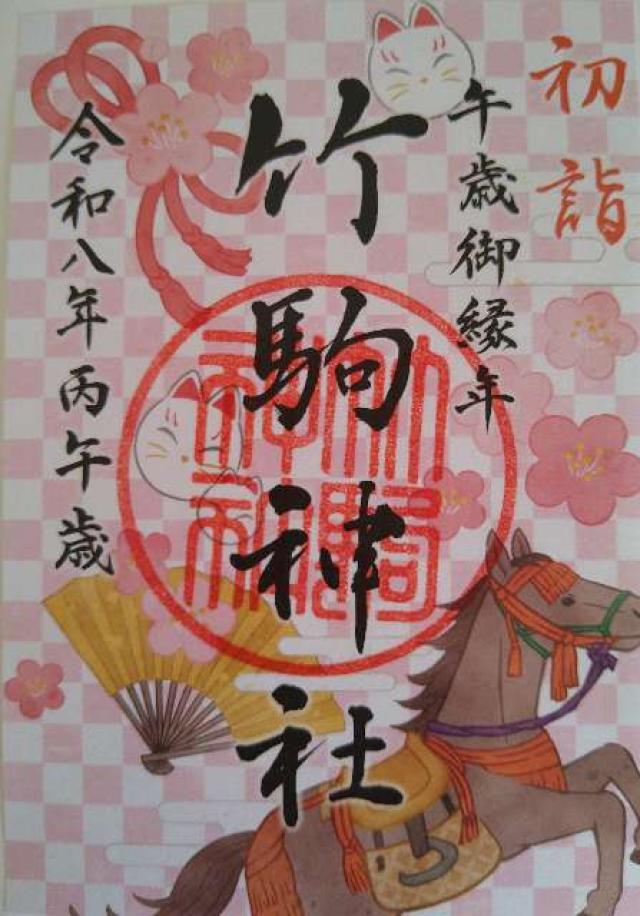 初詣
午歳御縁年
竹駒神社
令和八年丙午歳
竹駒神社